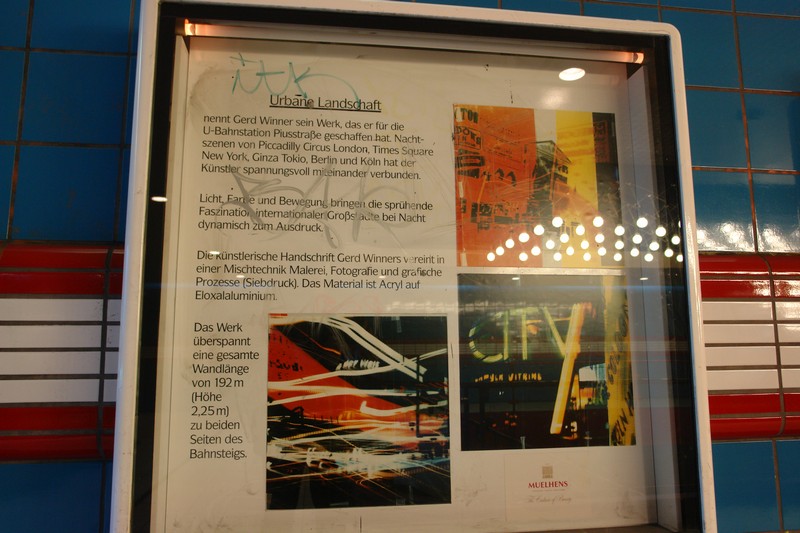 Urbane Landschaft
nennt Gerd Winner sein Werk, das er für die
U-Bahnstation Piusstraße geschaffen hat. Nacht-
szenen von Piccadilly Circus London, Times Square
New York, Ginza Tokio, Berlin und Köln hat der
Künstler spannungsvoll miteinander verbunden.
Licht, Farbe und Bewegung bringen die sprühende
Faszination internationaler Großstädte bei Nacht
dynamisch zum Ausdruck.
Die künstlerische Handschrift Gerd Winners vereint in
einer Mischtechnik Malerei, Fotografie und grafische
Prozesse (Siebdruck). Das Material ist Acryl auf
Eloxalaluminium.
Das Werk
überspannt
eine gesamte
Wandlänge
von 192 m
(Höhe
2,25 m)
zu beiden
Seiten des
Bahnsteigs.
CITY
MUELHENS